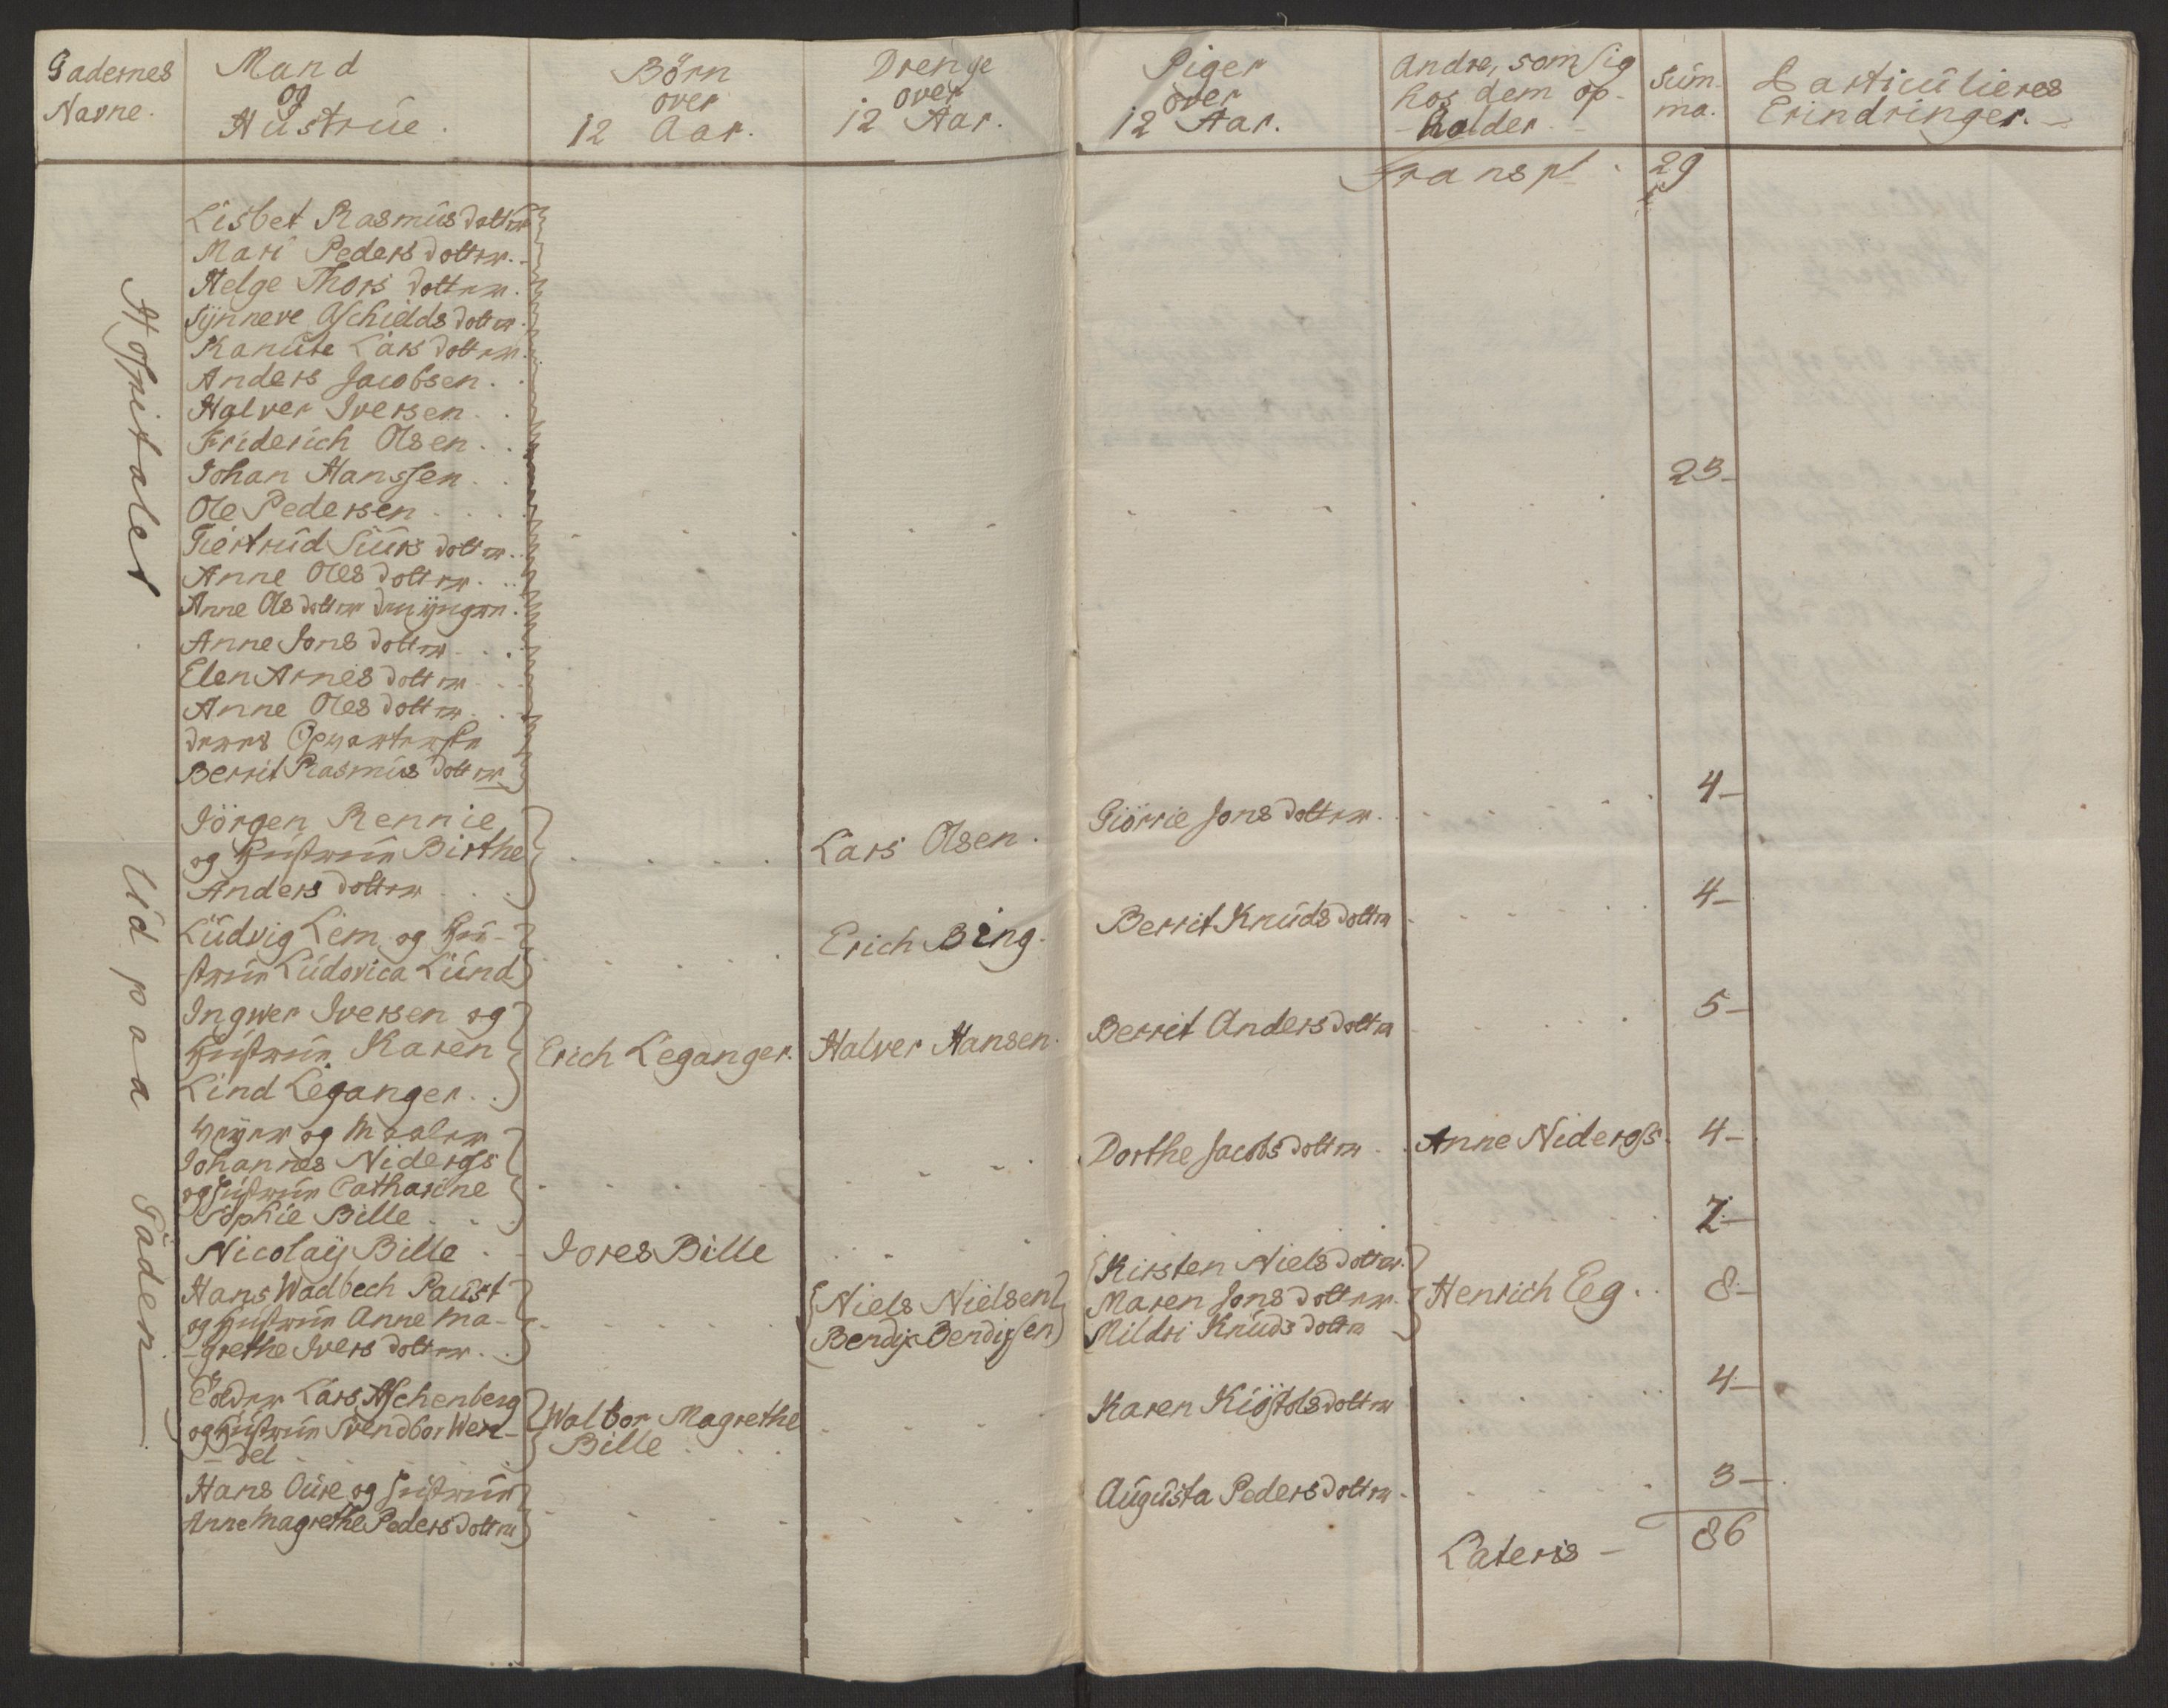 Gadernes Navne.
Mand og Hustrue.
Börn over 12 Aar.
Drenge over 12 Aar.
Piger over 12 Aar.
Andre, som sig hos dem op-holder.
Sum-ma.
Particulieres Erindringer.
Transpt. 29
Hospitalet
Lisbet Rasmus dotter
Mari Peders dotter.
Helge Thors dotter.
Synneve Aschields dotter
Kanute Lars dotter.
Anders Jacobsen.
Halver Iversen.
Friderich Olsen.
Johan Hanssen 23
Ole Pedersen
Giertrud Siurs dotter.
Anne Oles dotter.
Anne Ols dotter den yngere.
Anne Jons dotter
Elen Arnes dotter
Anne Oles dotter
deres Opvarterske
Berrit Rasmus dotter
Ud paa Gaden
Jörgen Rennie Giörrie Jons dotter. 4
og Hustrue Birthe Lars Olsen.
Anders dotter
Ludvig Lem og Hu- Erich Bing. Berrit Knuds dotter 4
strue Ludovica Lund
Ingwer Iversen og 5
Hustrue Karen Erich Leganger. Halver Hansen. Berrit Anders dotter
Lind Leganger.
Veyer og Maaler
Johannes Niderøss Dorthe Jacobs dotter Anne Niderøss. 4
og Hustrue Catharine
Sophie Bille
Nicolaij Bille Jores Bille 2
Hans Wadbech Paust Niels Nielsen Kirsten Niels dotter. Henrich Eeg. 8
og Hustrue Anne Ma- Bendix Bendixsen Maren Jons dotter
grethe Ivers dotter. Mildri Knuds dotter
Lars Aschenberg Walbor Magrethe Karen Kiöstols dotter 4
og Hustrue Svendbor Wen- Bille
del
Hans Oure og Hustrue Augusta Peders dotter 3
Anne Magrethe Peders dotter
Lateris 86